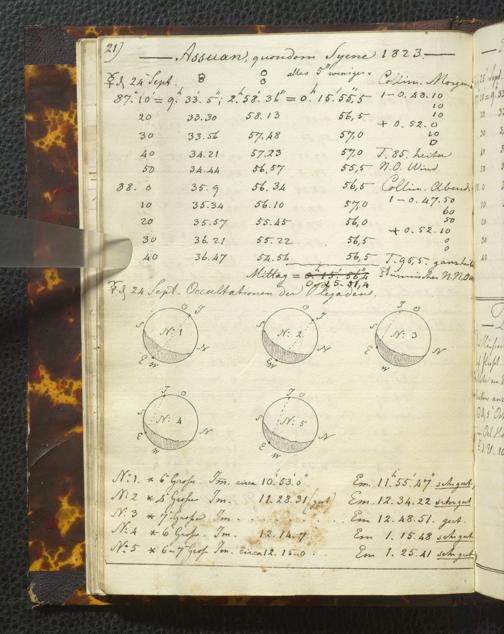 21)
Assuan, quondam Syene 1823.
♀ d. 24 Sept. alles 5" weniger. Collim. Morgens
87°.10 = 9h 33.5"; 2h 58.36" = 0h 15.55,5 1-0.43.10
10
20 33.30 58.13 56,5 10
+ 0.52.0
30 33.56 57.48 57,0 10
0
40 34.21 57.23 57,0 T. 85. heiter
50 34.44 56.57 55,5 N.O. Wind.
88. 0 35.9 56.34 56,5 Collim. Abends.
10 35.34 56.10 57,0 1-0.47.50
60
20 35.57 55.45 56,0 50
+ 0.52.10
30 36.21 55.22 56,5 0
0
40 36.47 54.56 56,5 T. 95,5. ganz heiter
Mittag = 0h 15' 56,4 Stürmischer N.N.O.
0. 15. 51,4
♀ d. 24 Sept. Occultationen der Plejaden.
O J
S N: 1 N
E W
O J
S N: 2 N
E W
J O
S N: 3 N
E W
J O
S N: 4 N
E W
J O
S N: 5 N
E W
N: 1. * 6 Größe Im. circa 10.53.0 Em. 11h.55.'47" sehr gut
N: 2 * 4 Größe Im. 11.28.31 (gut Em. 12.34.22 sehr gut
N: 3 * 7 Größe Im. Em 12.48.51. gut.
N: 4 * 6 Größe Im. 12.14.7 Em 1.15.48 sehr gut
N: 5 * 6-7 Größ Im. circa 12.15.0 Em 1.25.41 sehr gut